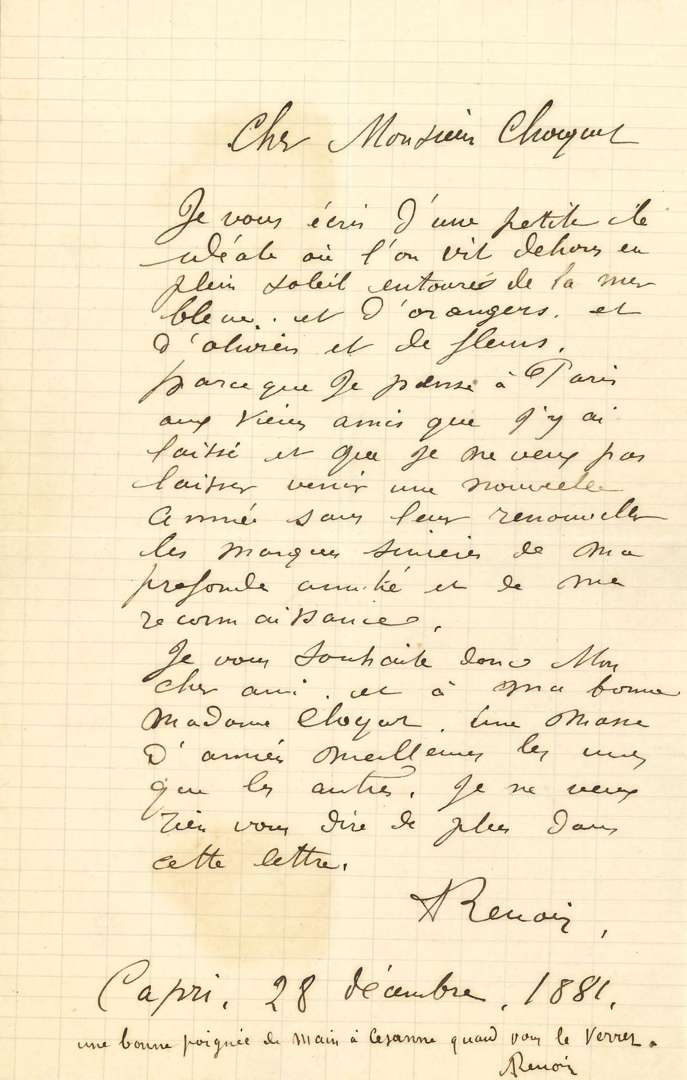 Cher Monsieur Choquet
Je vous écris d'une petite île
idéale où l'on vit dehors en
plein soleil entourés de la mer
bleue. et d'orangers. et
d'oliviers et de fleurs.
parce que Je pense à Paris
aux vieux amis que j'y ai
laissé et que je ne veux pas
laisser venir une nouvelle
année sans leur renouveller
les marques sincères de ma
profonde amitié et de ma
reconnaissance.
Je vous souhaite donc Mon
cher ami. et à ma bonne
Madame Choquet. une Masse
D'années meilleures les unes
que les autres. Je ne veux
rien vous dire de plus dans
cette lettre.
A Renoir.
Capri. 28 décembre. 1881.
une bonne poignée de main à Cezanne quand vous le verrez.
A Renoir